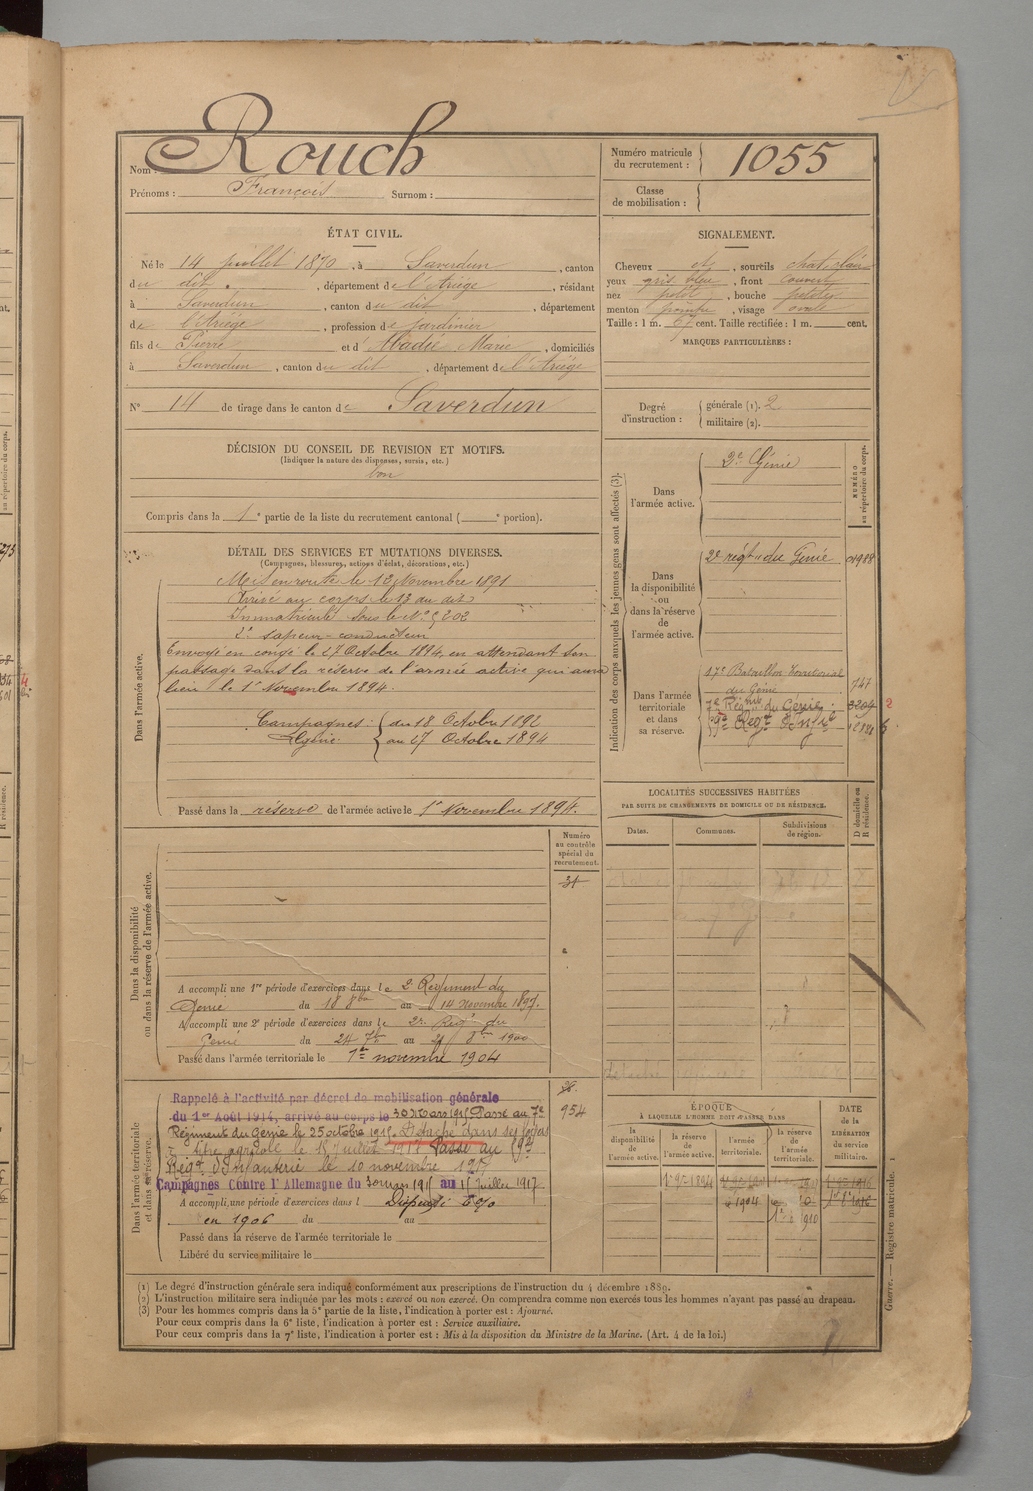 Nom : Rouch
Prénoms : François Surnom :
Numéro matricule du recrutement : 1055
Classe de mobilisation :
ÉTAT CIVIL.
Né le 14 juillet 1870, à Saverdun, canton
du dit, département de l'Ariège, résidant
à Saverdun, canton du dit, département
de l'Ariège, profession de jardinier
fils de Pierre et d'Abadie Marie, domiciliés
à Saverdun, canton du dit, département de l'Ariège
N° 14 de tirage dans le canton de Saverdun
SIGNALEMENT.
Cheveux et, sourcils chat. clair
yeux gris bleu, front couvert
nez petit, bouche
menton pointu, visage ovale
Taille : 1 m. 67 cent. Taille rectifiée : 1 m. cent.
MARQUES PARTICULIÈRES :
Degré d'instruction : générale (1). 2
militaire (2).
DÉCISION DU CONSEIL DE REVISION ET MOTIFS.
(Indiquer la nature des dispenses, sursis, etc.)
bon
Compris dans la 1e partie de la liste du recrutement cantonal ( e portion).
DÉTAIL DES SERVICES ET MUTATIONS DIVERSES.
(Campagnes, blessures, actions d'éclat, décorations, etc.)
Dans l'armée active.
Mis en route le 12 Novembre 1891
Arrivé au corps le 13 du dit
Immatriculé sous le N° 5202
2e sapeur-conducteur
Envoyé en congé le 27 Octobre 1894, en attendant son
passage dans la réserve de l'armée active qui aura
lieu le 1er Novembre 1894.
Campagnes : du 18 Octobre 1892
Algérie. au 27 Octobre 1894
Passé dans la réserve de l'armée active le 1er Novembre 1894.
Indication des corps auxquels les jeunes gens sont affectés (3).
NUMÉRO au répertoire du corps.
Dans l'armée active.
2e Génie
Dans la disponibilité ou dans la réserve de l'armée active.
2e régt du Génie 01988
Dans l'armée territoriale et dans sa réserve.
17e Bataillon Territorial
du Génie 747
7e Régt du Génie 3209 2
Dans la disponibilité ou dans la réserve de l'armée active.
Numéro au contrôle spécial du recrutement.
31
A accompli une 1re période d'exercices dans le 2 Régiment du
Génie du 18 8bre au 14 Novembre 1897.
A accompli une 2e période d'exercices dans le 2e Régt du
Génie du 24 7bre au 21 8bre 1900
Passé dans l'armée territoriale le 1er novembre 1904
LOCALITÉS SUCCESSIVES HABITÉES
PAR SUITE DE CHANGEMENTS DE DOMICILE OU DE RÉSIDENCE.
D domicile ou R résidence.
Dates. Communes. Subdivisions de région.
Dans l'armée territoriale et dans sa réserve.
954
Rappelé à l'activité par décret de mobilisation générale
du 1er Août 1914, arrivé au corps le 30 Mars 1915 Passé au 7e
Régiment du Génie le 25 octobre 1915. Détaché dans ses foyers
titre agricole le 15 Juillet 1917 Passé au
Régt d'Infanterie le 10 novembre 1917
Campagnes Contre l'Allemagne du 30 mars 1915 au 15 Juillet 1917
A accompli une période d'exercices dans l Dispensé
en 1906 du au
Passé dans la réserve de l'armée territoriale le
Libéré du service militaire le
ÉPOQUE
À LAQUELLE L'HOMME DOIT PASSER DANS
la disponibilité de l'armée active. la réserve de l'armée active. l'armée territoriale. la réserve de l'armée territoriale.
DATE de la LIBÉRATION du service militaire.
1er 9bre 1894
1904
1910
(1) Le degré d'instruction générale sera indiqué conformément aux prescriptions de l'instruction du 4 décembre 1889.
(2) L'instruction militaire sera indiquée par les mots : exercé ou non exercé. On comprendra comme non exercés tous les hommes n'ayant pas passé au drapeau.
(3) Pour les hommes compris dans la 5e partie de la liste, l'indication à porter est : Ajourné.
Pour ceux compris dans la 6e liste, l'indication à porter est : Service auxiliaire.
Pour ceux compris dans la 7e liste, l'indication à porter est : Mis à la disposition du Ministre de la Marine. (Art. 4 de la loi.)
Guerre. — Registre matricule. 1